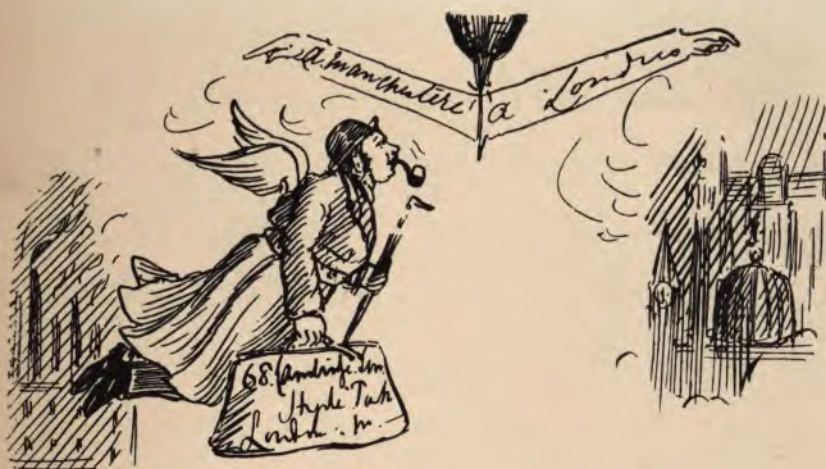 à Manchestère
à Londres
68. Cambridge
Hyde Park
London. W.